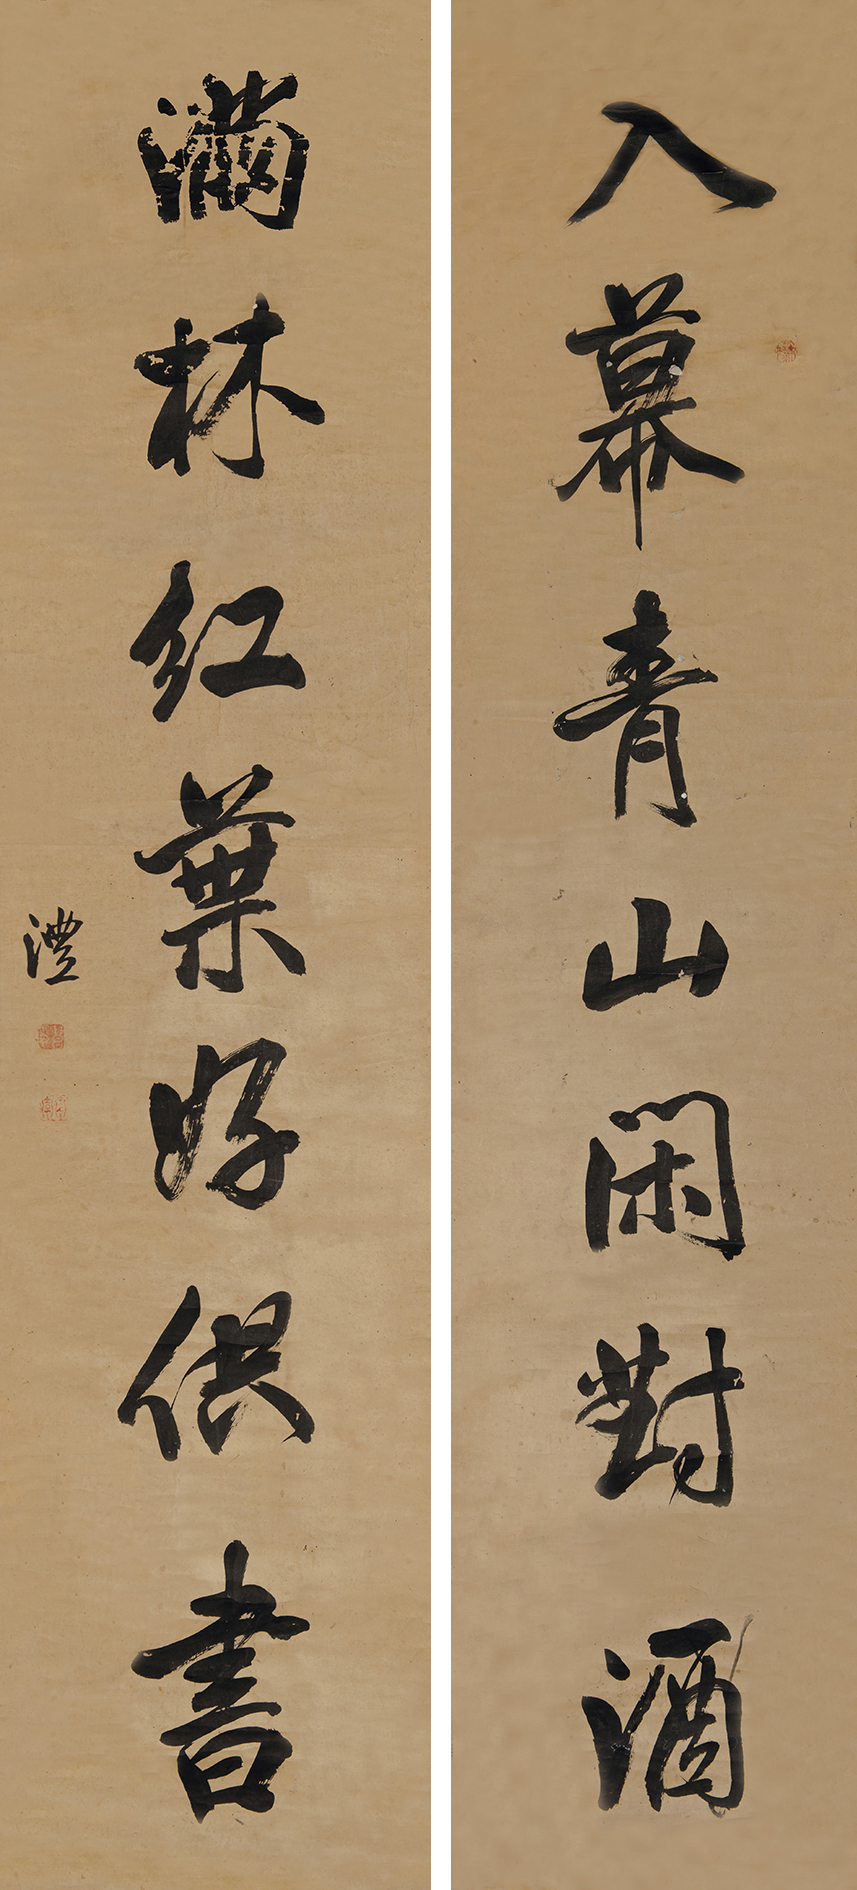 入幕青山閑對酒
滿林紅葉好供書
澧